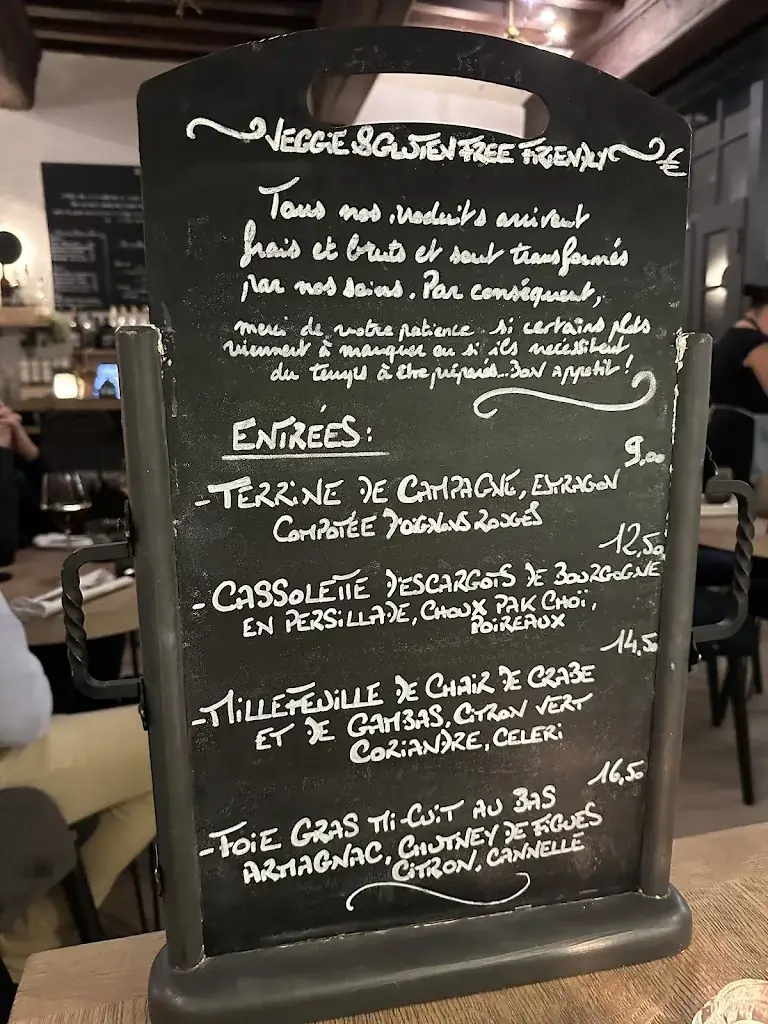 VEGGIE & GLUTEN FREE FRIENDLY €
Tous nos produits arrivent
frais et bruts et sont transformés
par nos soins. Par conséquent,
merci de votre patience si certains plats
viennent à manquer ou si ils nécessitent
du temps à être préparés... Bon appétit !
ENTRÉES:
9,00
-TERRINE DE CAMPAGNE, ESTRAGON
COMPOTÉE D'OIGNONS ROUGES
12,50
-CASSOLETTE D'ESCARGOTS DE BOURGOGNE
EN PERSILLADE, CHOUX PAK CHOÏ,
POIREAUX
14,50
-MILLEFEUILLE DE CHAIR DE CRABE
ET DE GAMBAS, CITRON VERT
CORIANDRE, CELERI
16,50
-FOIE GRAS MI-CUIT AU BAS
ARMAGNAC, CHUTNEY DE FIGUES
CITRON, CANNELLE